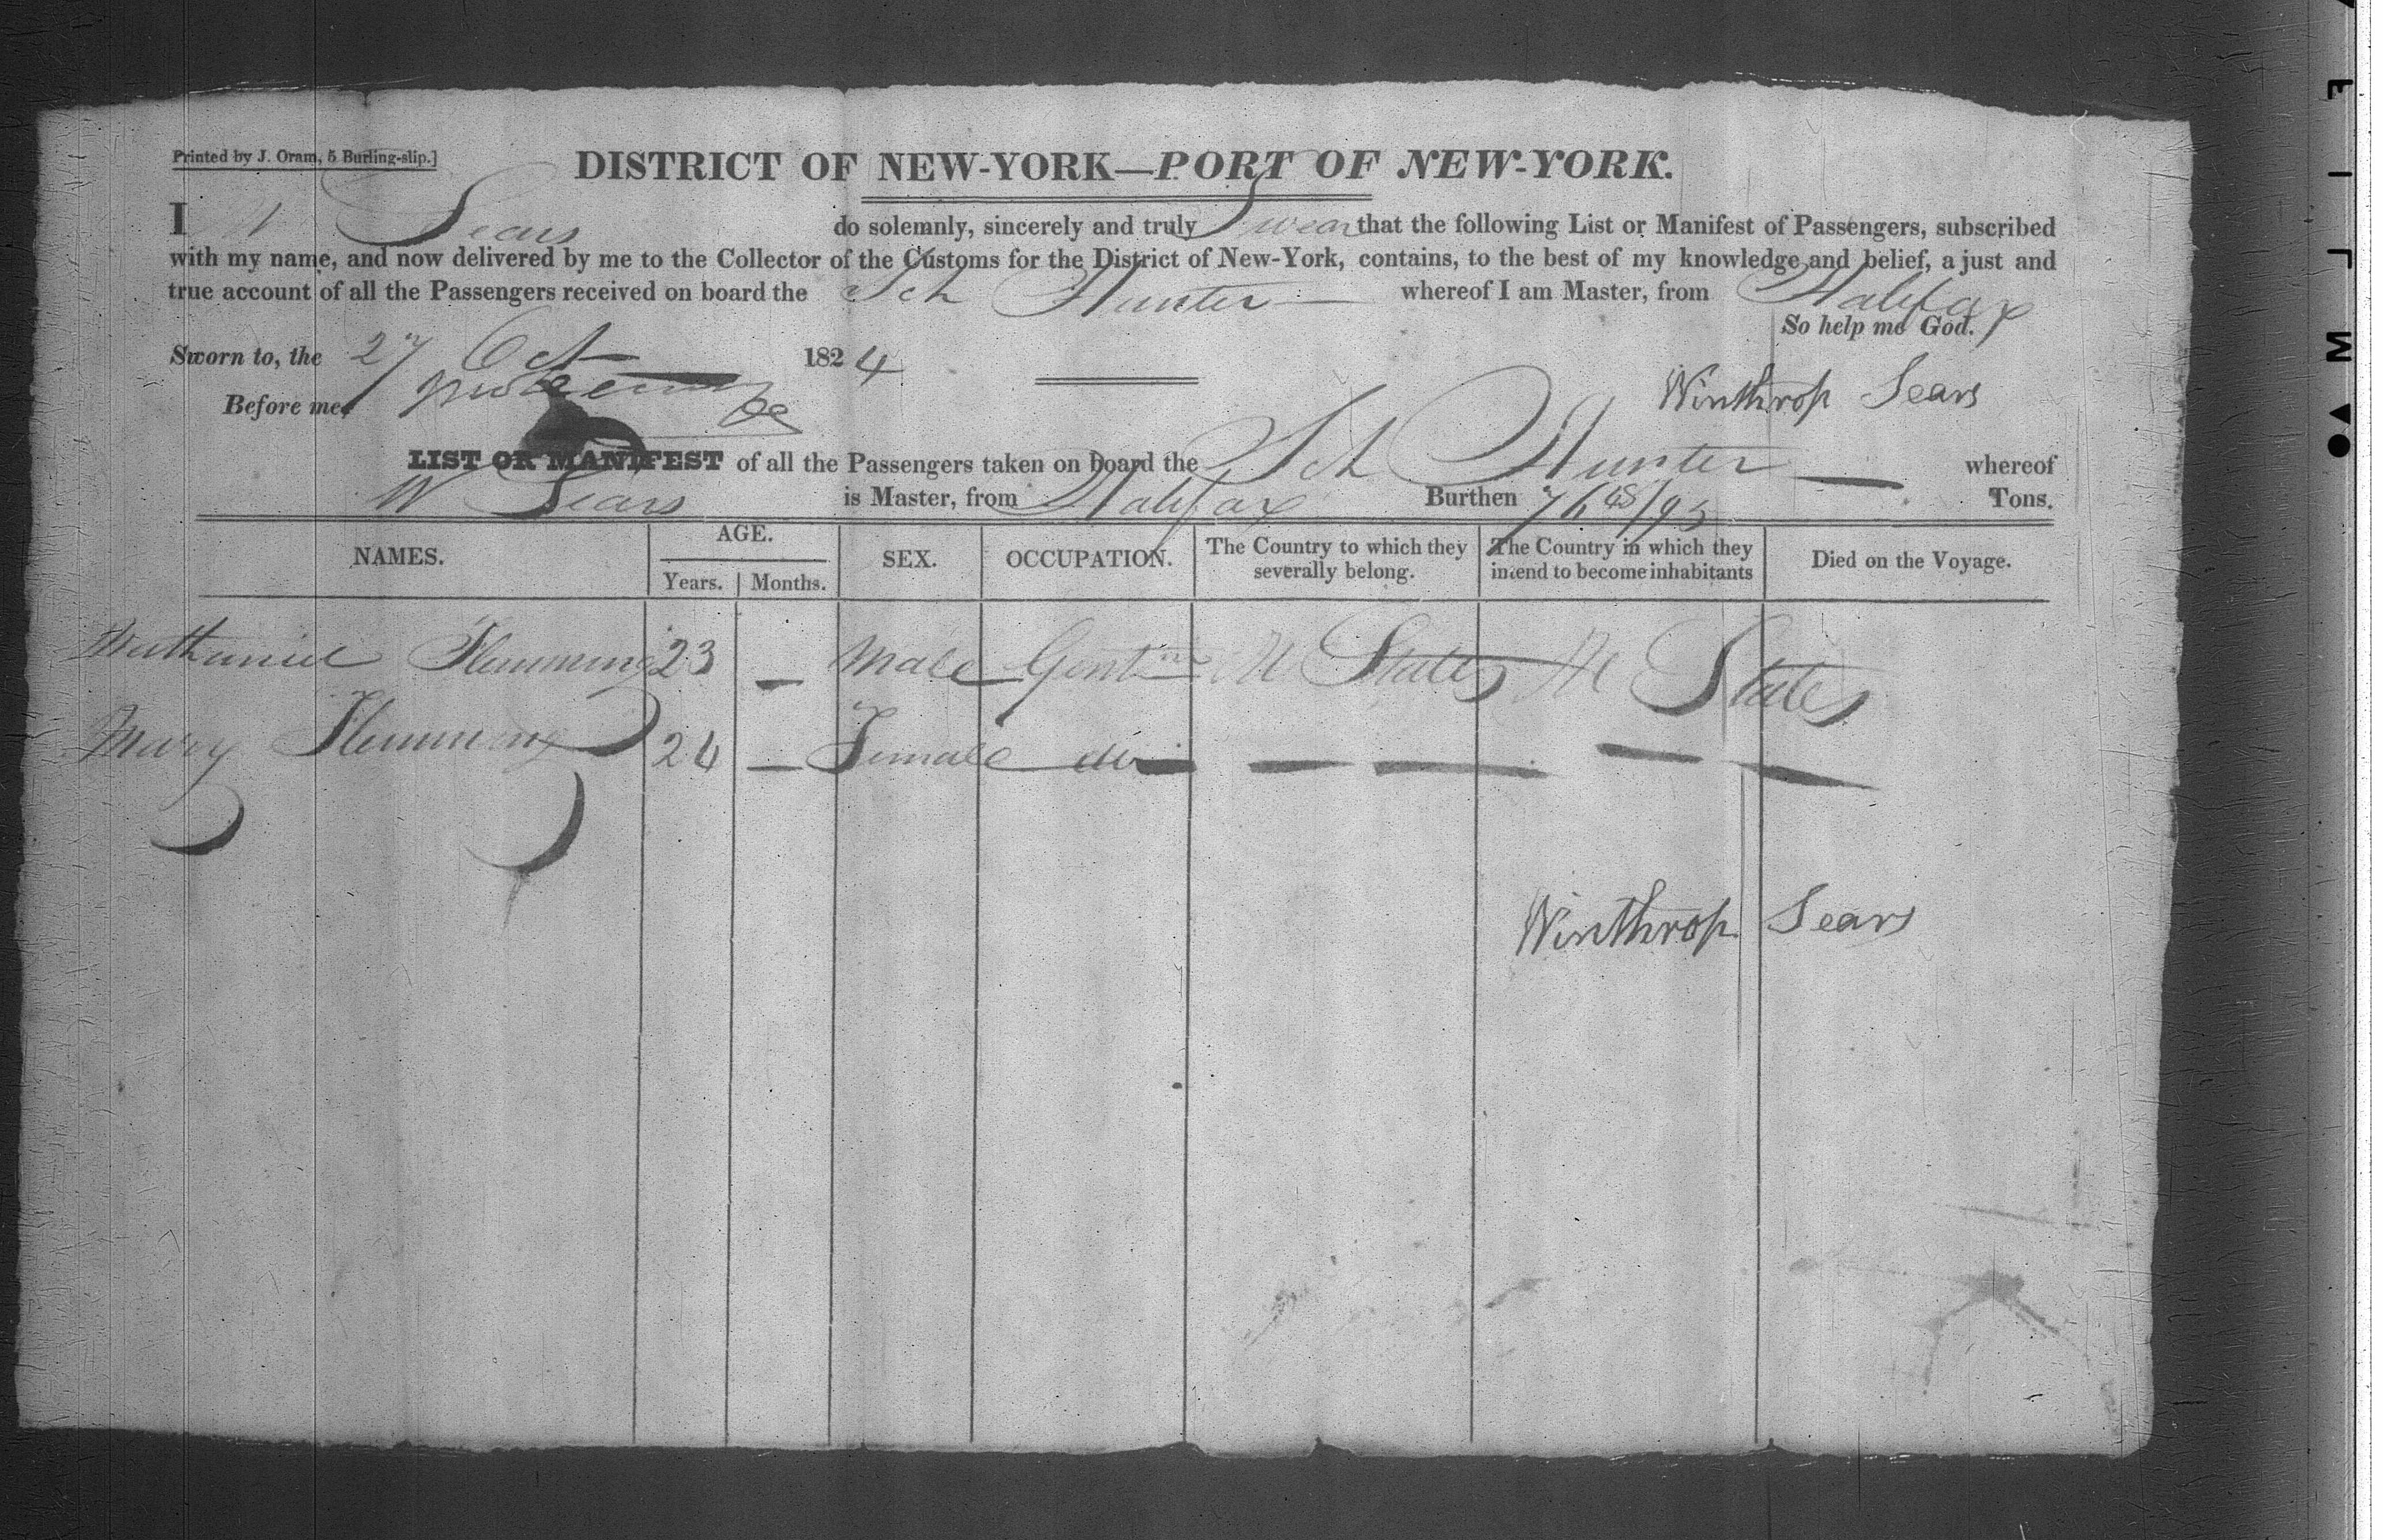 Printed by J. Oram, 5 Burling-slip.]
DISTRICT OF NEW-YORK—PORT OF NEW-YORK.
I W Sears do solemnly, sincerely and truly Swear that the following List or Manifest of Passengers, subscribed
with my name, and now delivered by me to the Collector of the Customs for the District of New-York, contains, to the best of my knowledge and belief, a just and
true account of all the Passengers received on board the Sch Hunter — whereof I am Master, from Halifax
So help me God.
Sworn to, the 27 Oct 1824
Winthrop Sears
Before me,
LIST OR MANIFEST of all the Passengers taken on board the Sch Hunter — whereof
W Sears is Master, from Halifax Burthen 76 48/95 Tons.
NAMES. AGE. SEX. OCCUPATION. The Country to which they severally belong. The Country in which they intend to become inhabitants Died on the Voyage.
Years. Months.
Nathaniel Flemming 23 — Male Gentm U States U States
Mary Flemming 24 — Female do — — — — —
Winthrop Sears
FILM